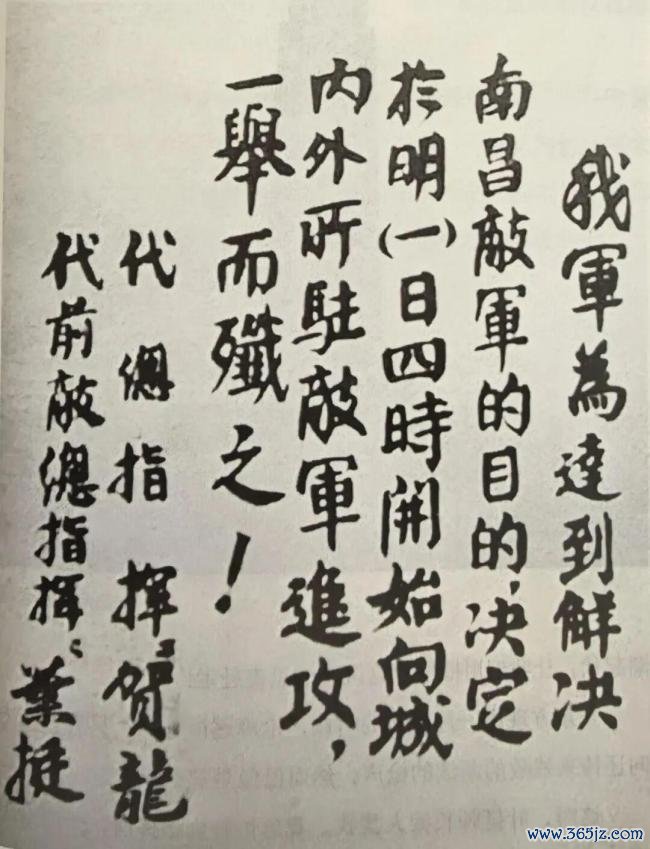 我軍為達到解决
南昌敵軍的目的,决定
於明(一)日四時開始向城
内外所駐敵軍進攻,
一舉而殲之!
代總指揮:賀龍
代前敵總指揮:葉挺
www.365jz.com